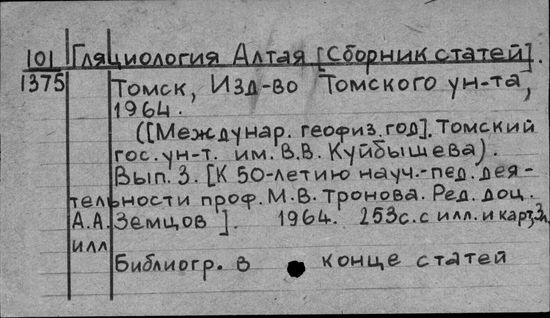 101 Гляциология Алтая [Сборник статей].
1375 Томск, Изд-во Томского ун-та,
1964.
([Междунар. геофиз. год]. Томский
гос. ун-т. им. В.В. Куйбышева).
Вып. 3. [К 50-летию науч.-пед. дея-
тельности проф. М.В. Тронова. Ред. доц.
А.А. Земцов]. 1964. 253с. с илл. и карт; 3л.
илл
Библиогр. в конце статей